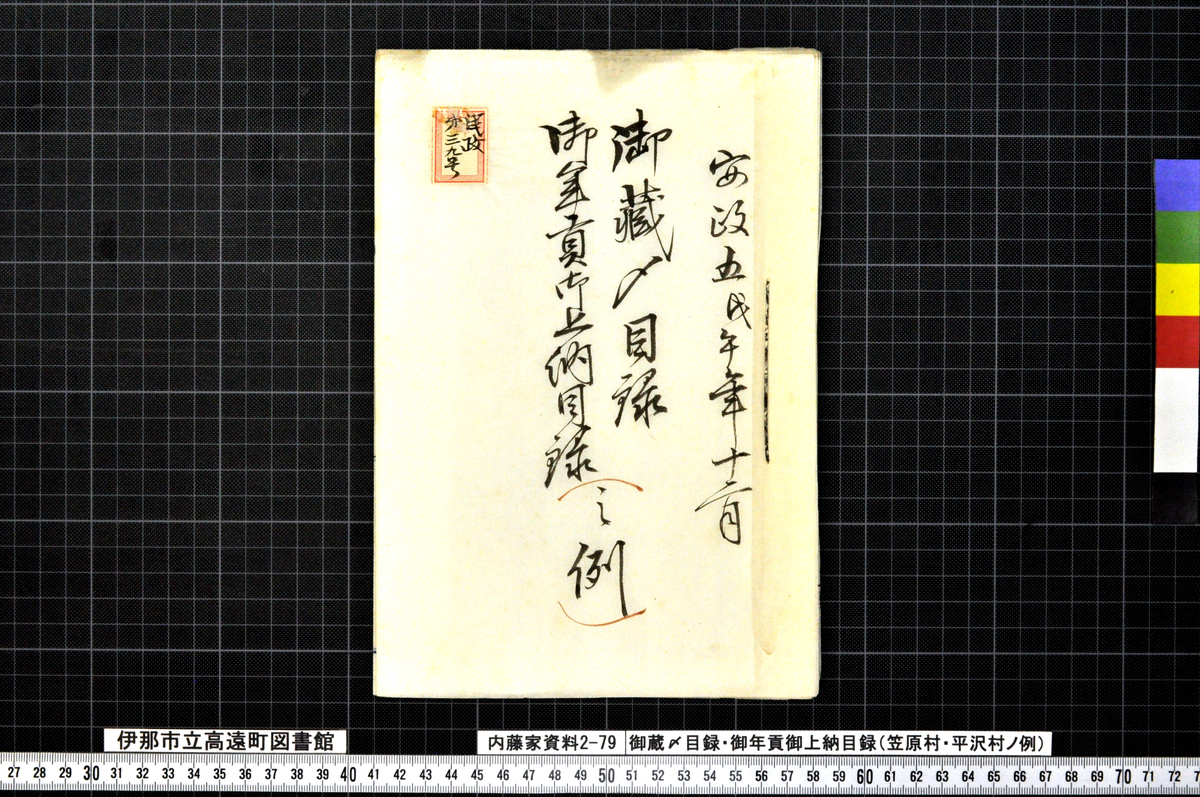 安政五戊午年十二月
御蔵〆目録
御年貢御上納目録
(之例)
民政
第三九号
伊那市立高遠町図書館
内藤家資料2-79
御蔵〆目録・御年貢御上納目録(笠原村・平沢村ノ例)
27 28 29 30 31 32 33 34 35 36 37 38 39 40 41 42 43 44 45 46 47 48 49 50 51 52 53 54 55 56 57 58 59 60 61 62 63 64 65 66 67 68 69 70 71 72